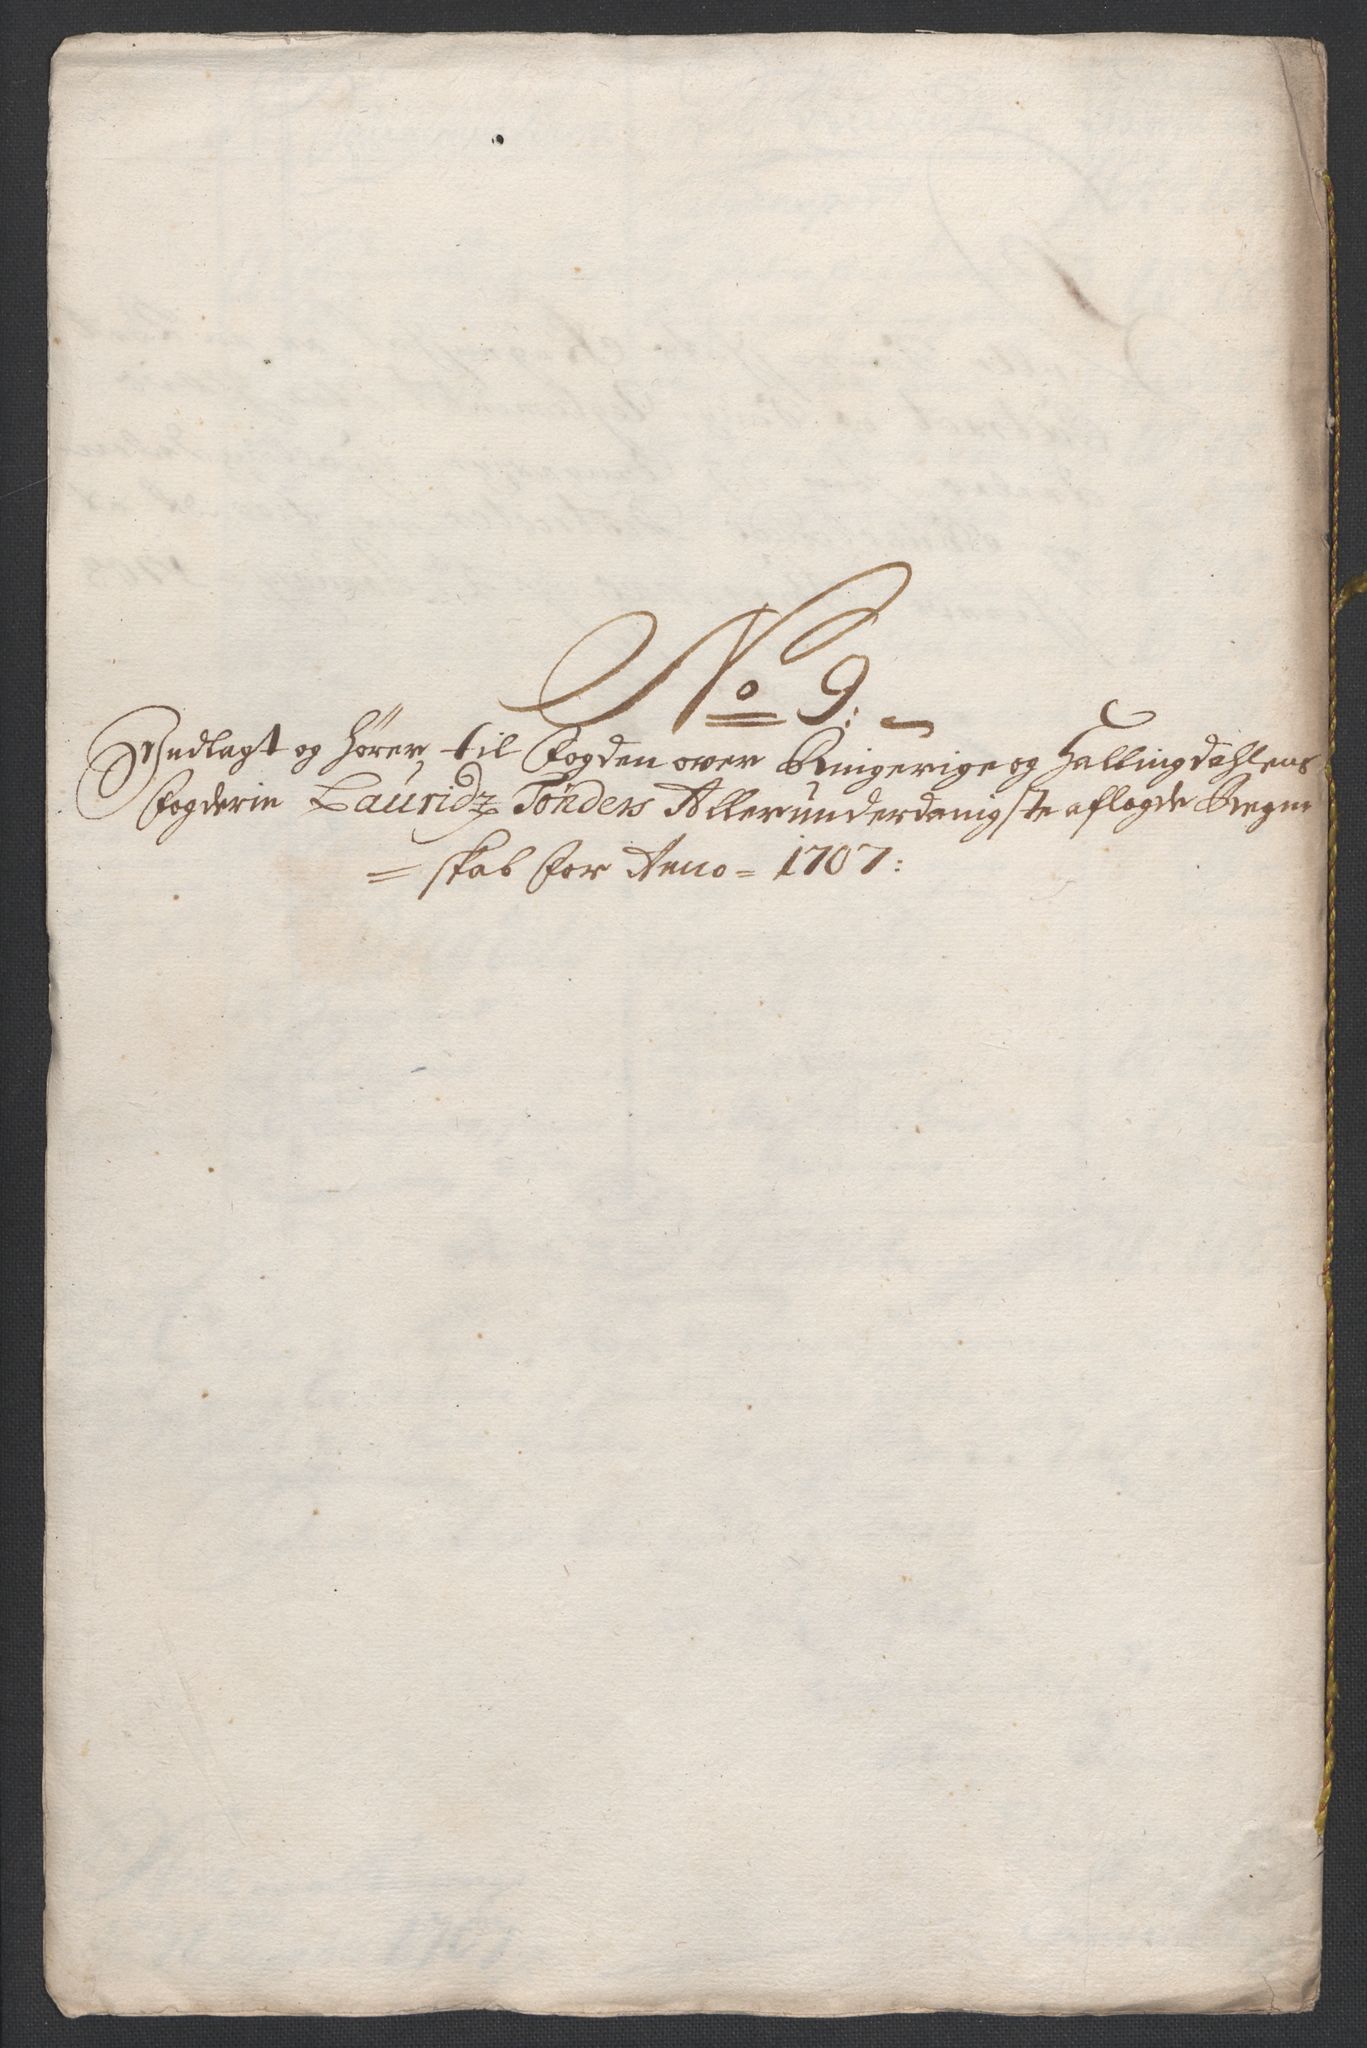 No 9:
Indlagt og hører til Fogden over Ringerige og Hallingdahlens
Fogderie Lauridz Tønders Allerunderdanigste aflagde Regn-
= skab for Anno = 1707: